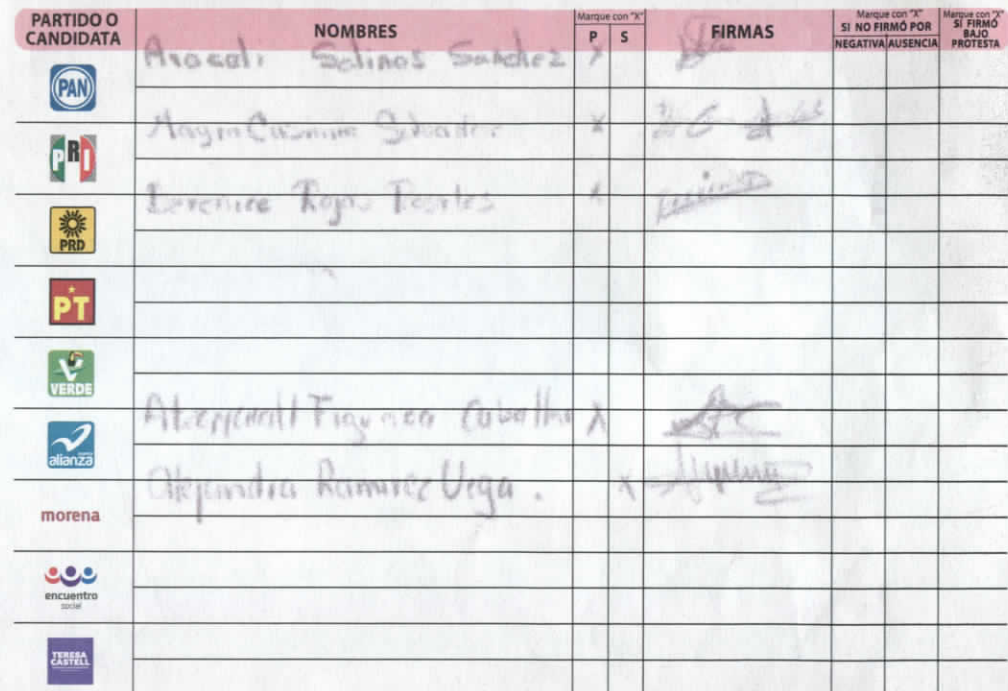 PARTIDO O CANDIDATA
NOMBRES
Marque con "X"
P S
FIRMAS
Marque con "X" SI NO FIRMÓ POR
NEGATIVA AUSENCIA
Marque con "X" SI FIRMÓ BAJO PROTESTA
PAN
Araceli Salinas Sanchez X
PRI
Mayra Salvador X
PRD
Berenice Rojas Rosales X
PT
VERDE
alianza
Figueroa Caballero X
morena
Alejandra Ramirez Vega. X
encuentro social
TERESA CASTELL